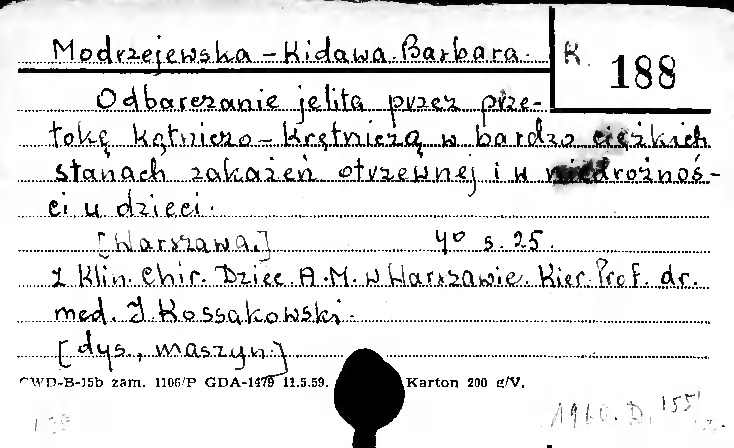 Modrzejewska - Kidawa Barbara.
K. 188
Odbarczanie jelita przez prze-
tokę kątniczo - krętniczą w bardzo ciężkich
stanach zakażeń otrzewnej i w niedrożnoś-
ci u dzieci.
[Warszawa.] 4° s. 25.
Z Klin. Chir. Dziec. A.M. w Warszawie. Kier. Prof. dr.
med. J Kossakowski.
[dys., maszyn.]
CWD-B-15b zam. 1106/P GDA-1479 11.5.59. Karton 200 g/V.
1960. D. 155